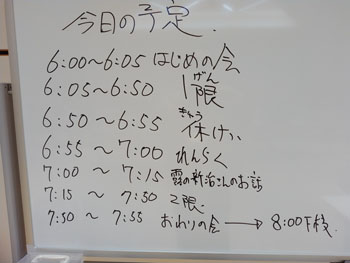 今日の予定.
6:00～6:05 はじめの会
げん
6:05～6:50 1限
きゅう
6:50～6:55 休けい
6:55～7:00 れんらく
7:00～7:15 露の新治さんのお話
7:15～7:50 2限.
7:50～7:55 おわりの会→8:00下校.